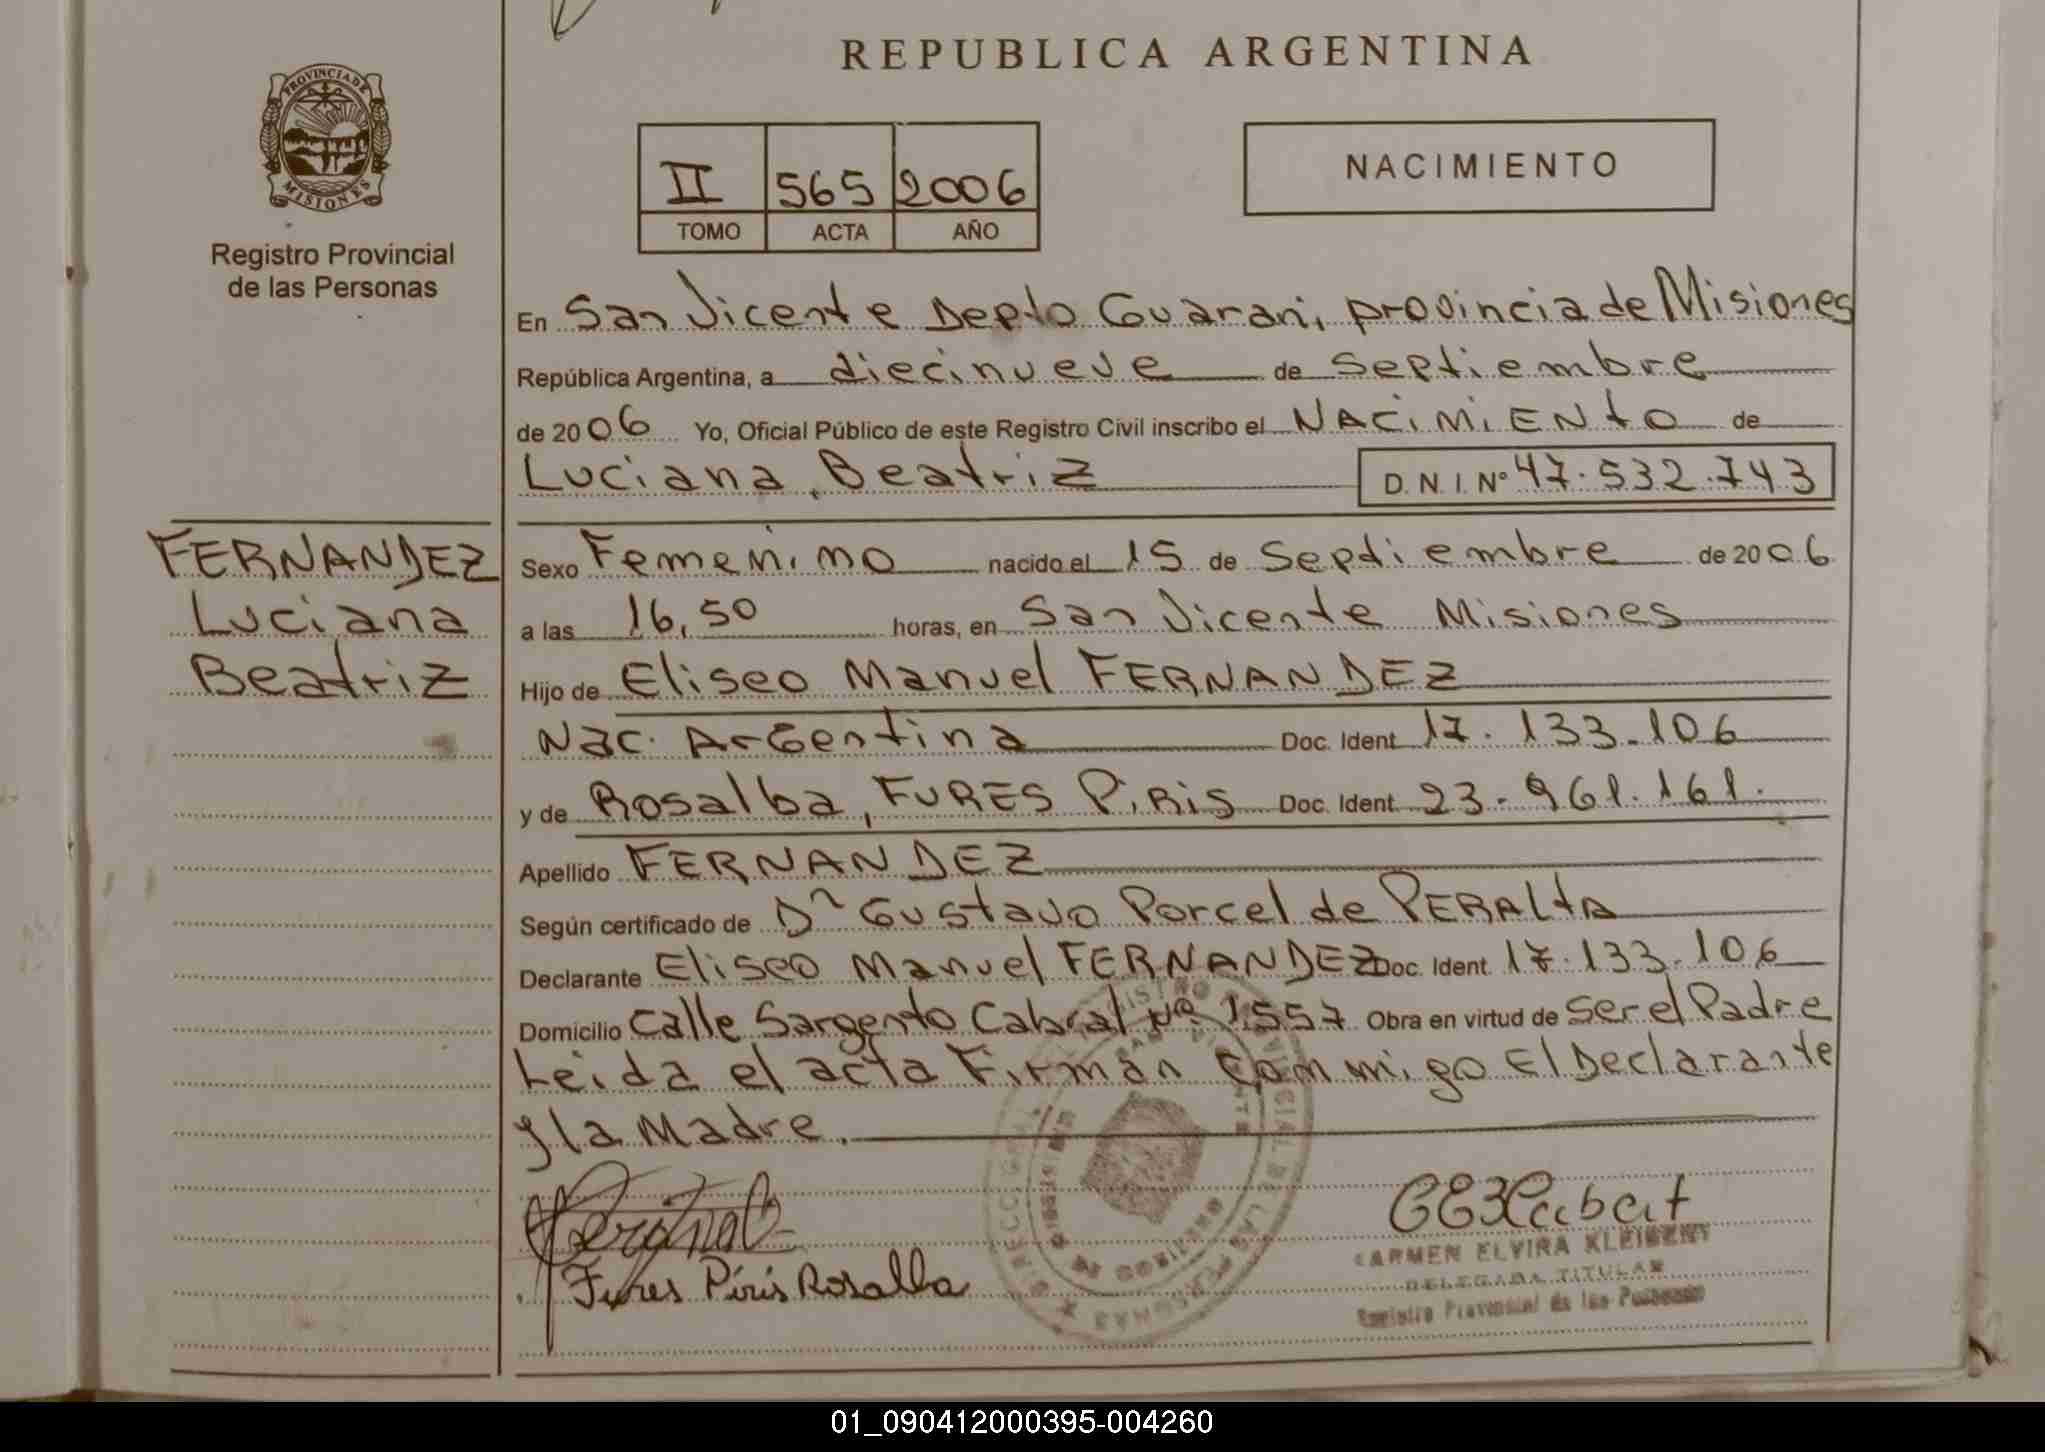 REPUBLICA ARGENTINA
PROVINCIA DE
MISIONES
Registro Provincial
de las Personas
II 565 2006
TOMO ACTA AÑO
NACIMIENTO
En San Vicente Depto Guarani, provincia de Misiones
República Argentina, a diecinueve de septiembre
de 2006 Yo, Oficial Público de este Registro Civil inscribo el NACIMIENTO de
Luciana, Beatriz D.N.I. Nº 47.532.743
FERNANDEZ
Luciana
Beatriz
Sexo Femenino nacido el 15 de Septiembre de 2006
a las 16,50 horas, en San Vicente Misiones
Hijo de Eliseo Manuel FERNANDEZ
Nac. Argentina Doc. Ident. 17.133.106
y de Rosalba, FURES PiRiS Doc. Ident. 23.961.161.
Apellido FERNANDEZ
Según certificado de Dr Gustavo Porcel de PERALTA
Declarante Eliseo Manuel FERNANDEZ Doc. Ident. 17.133.106
Domicilio Calle Sargento Cabral Nº 1557 Obra en virtud de ser el Padre
Leida el acta Firman Conmigo El Declarante
y la Madre.
Fures Piris Rosalba
CARMEN ELVIRA
DELEGADA TITULAR
Registro Provincial de las Personas
01_090412000395-004260